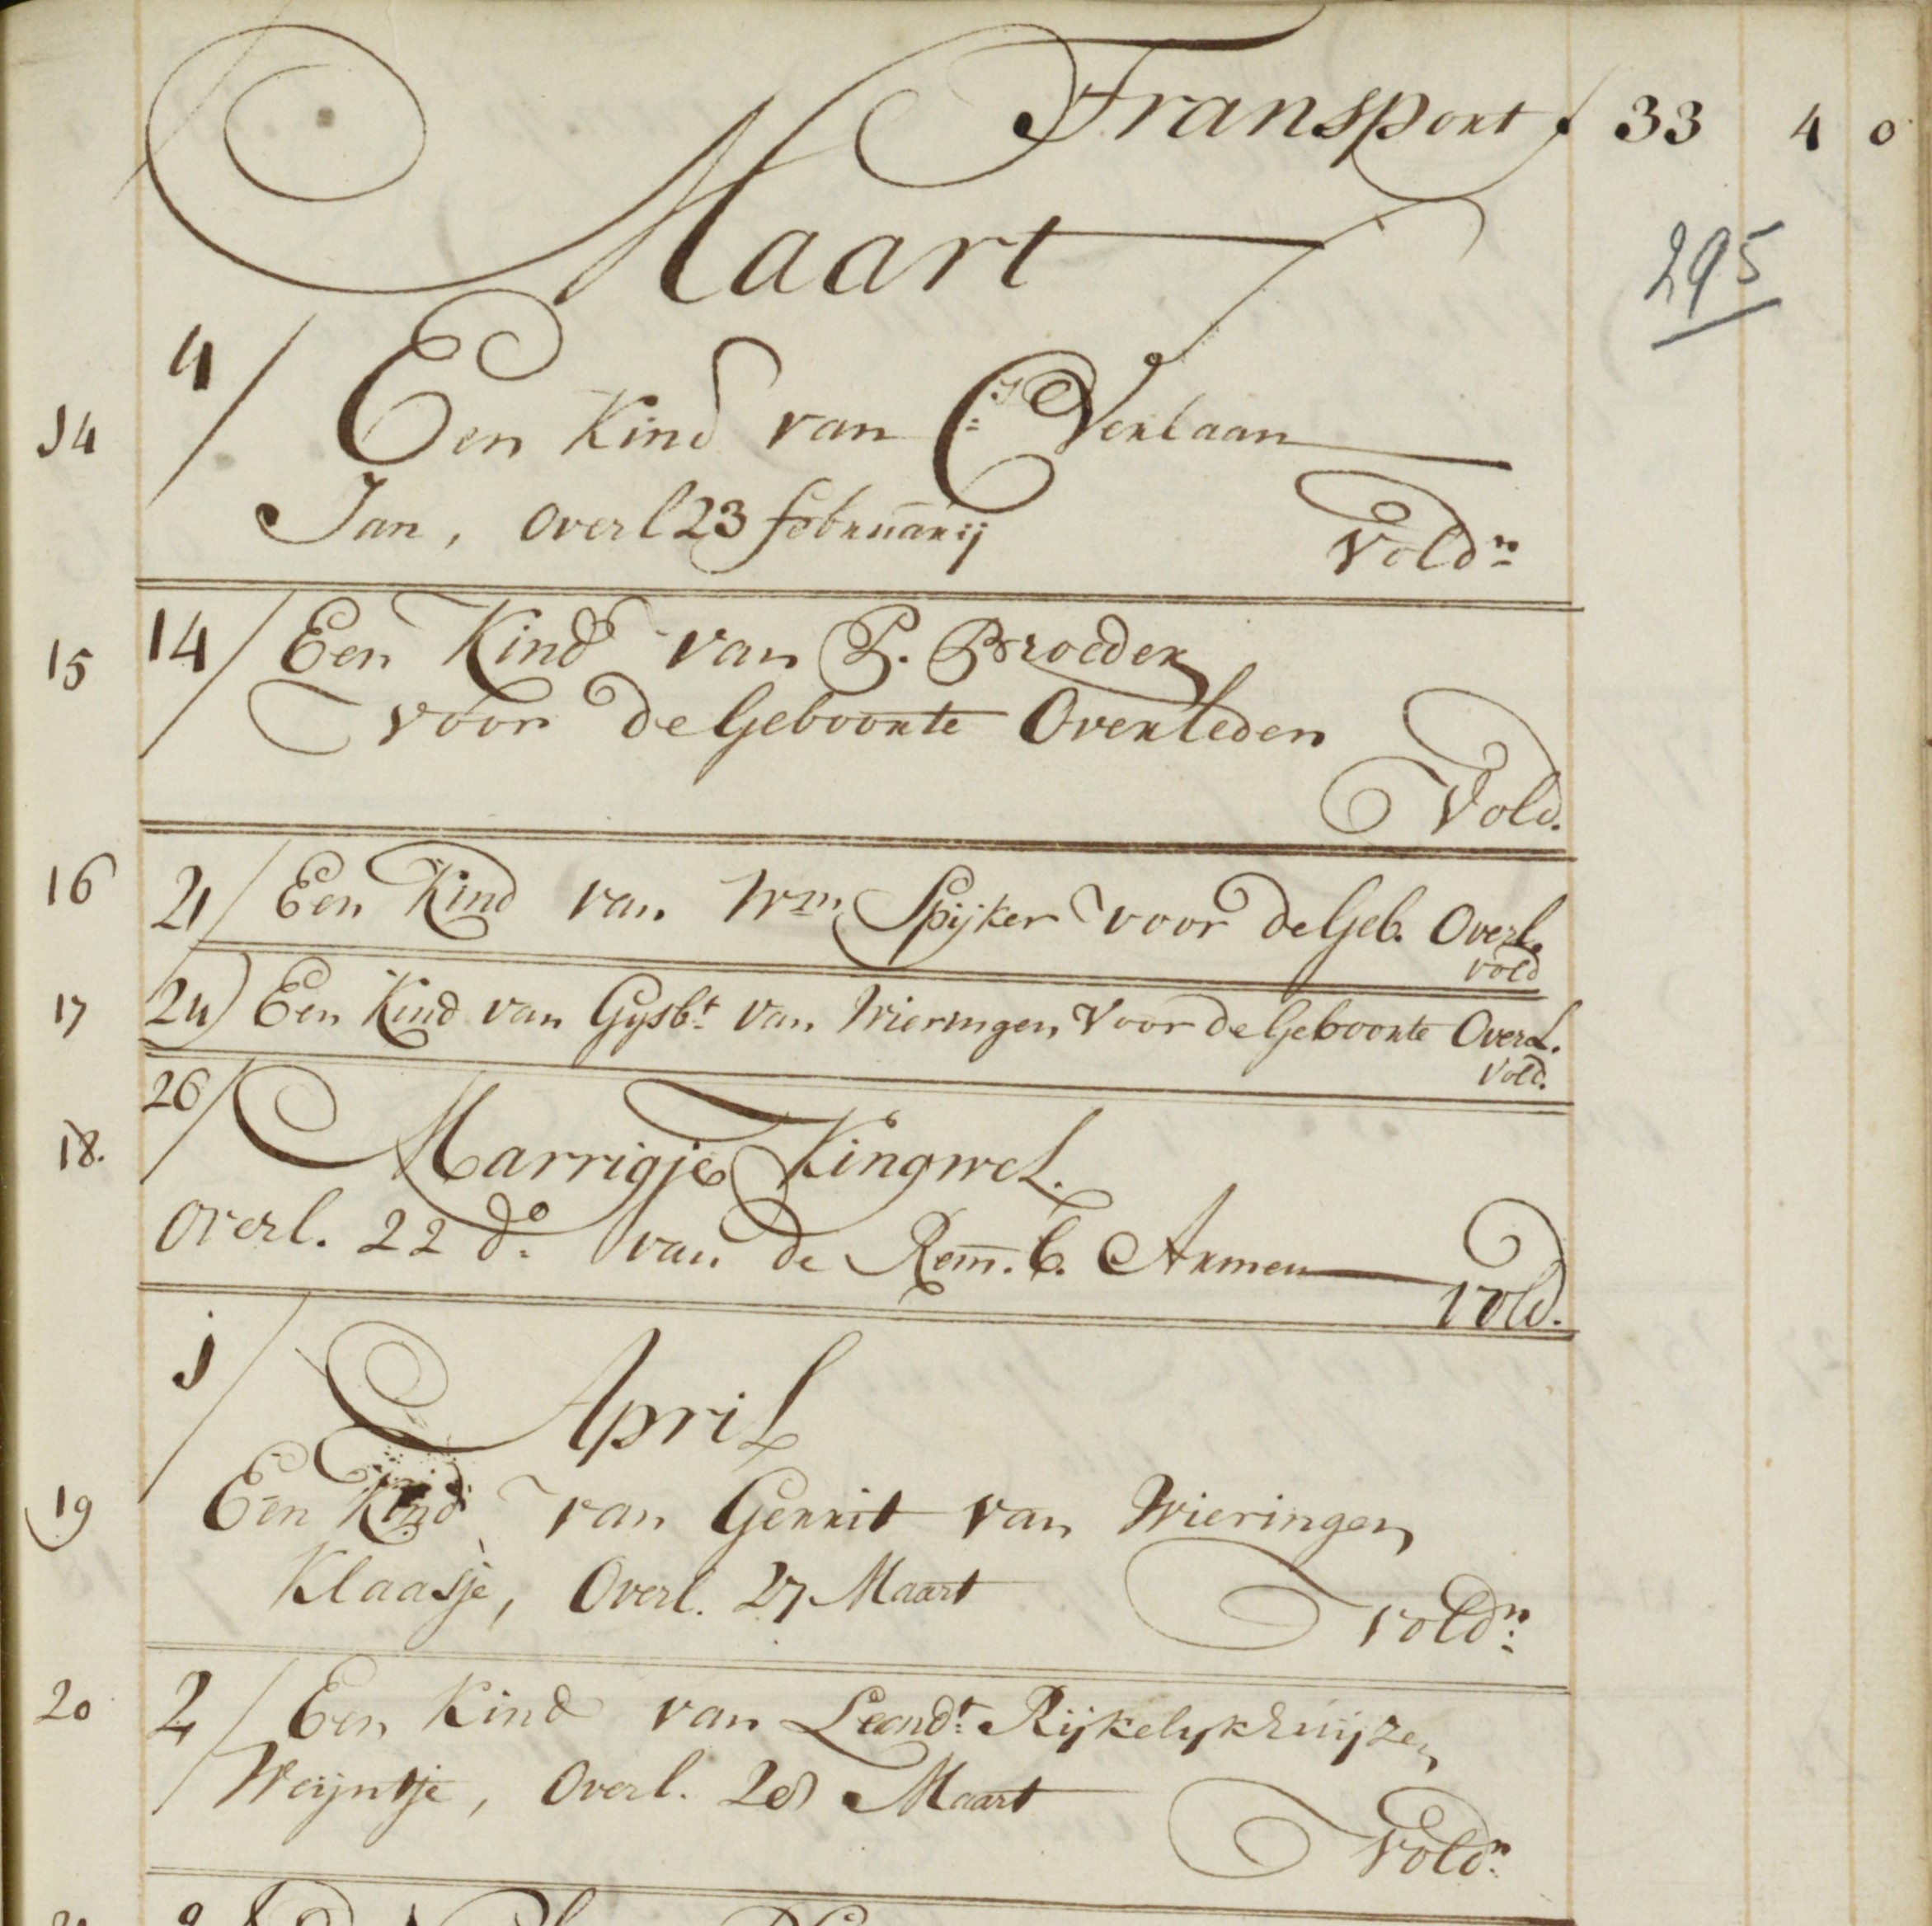 Transport f 33 4 0
295
Maart
14 4/ Een Kind van C:s Verlaan
Jan, Overl 23 februarij Vold:n
15 14/ Een Kind van P. Broeder
voor de Geboorte Overleden
Vold.
16 21/ Een Kind van Wm Spijker voor de Geb. Overl.
vold
17 24) Een Kind van Gysb:t van Wieringen Voor de Geboorte Overl.
Vold.
18. 26/ Marrigje Kingwel.
Overl. 22 d:o van de Rem. G. Armen
Vold.
1/ April
19 Een Kind van Gerrit van Wieringen
Klaasje, Overl. 27 Maart Vold:n
20 2/ Een Kind van Leend:t Rijkelykhuijzen
Weijntje, Overl. 28 Maart
Vold:n